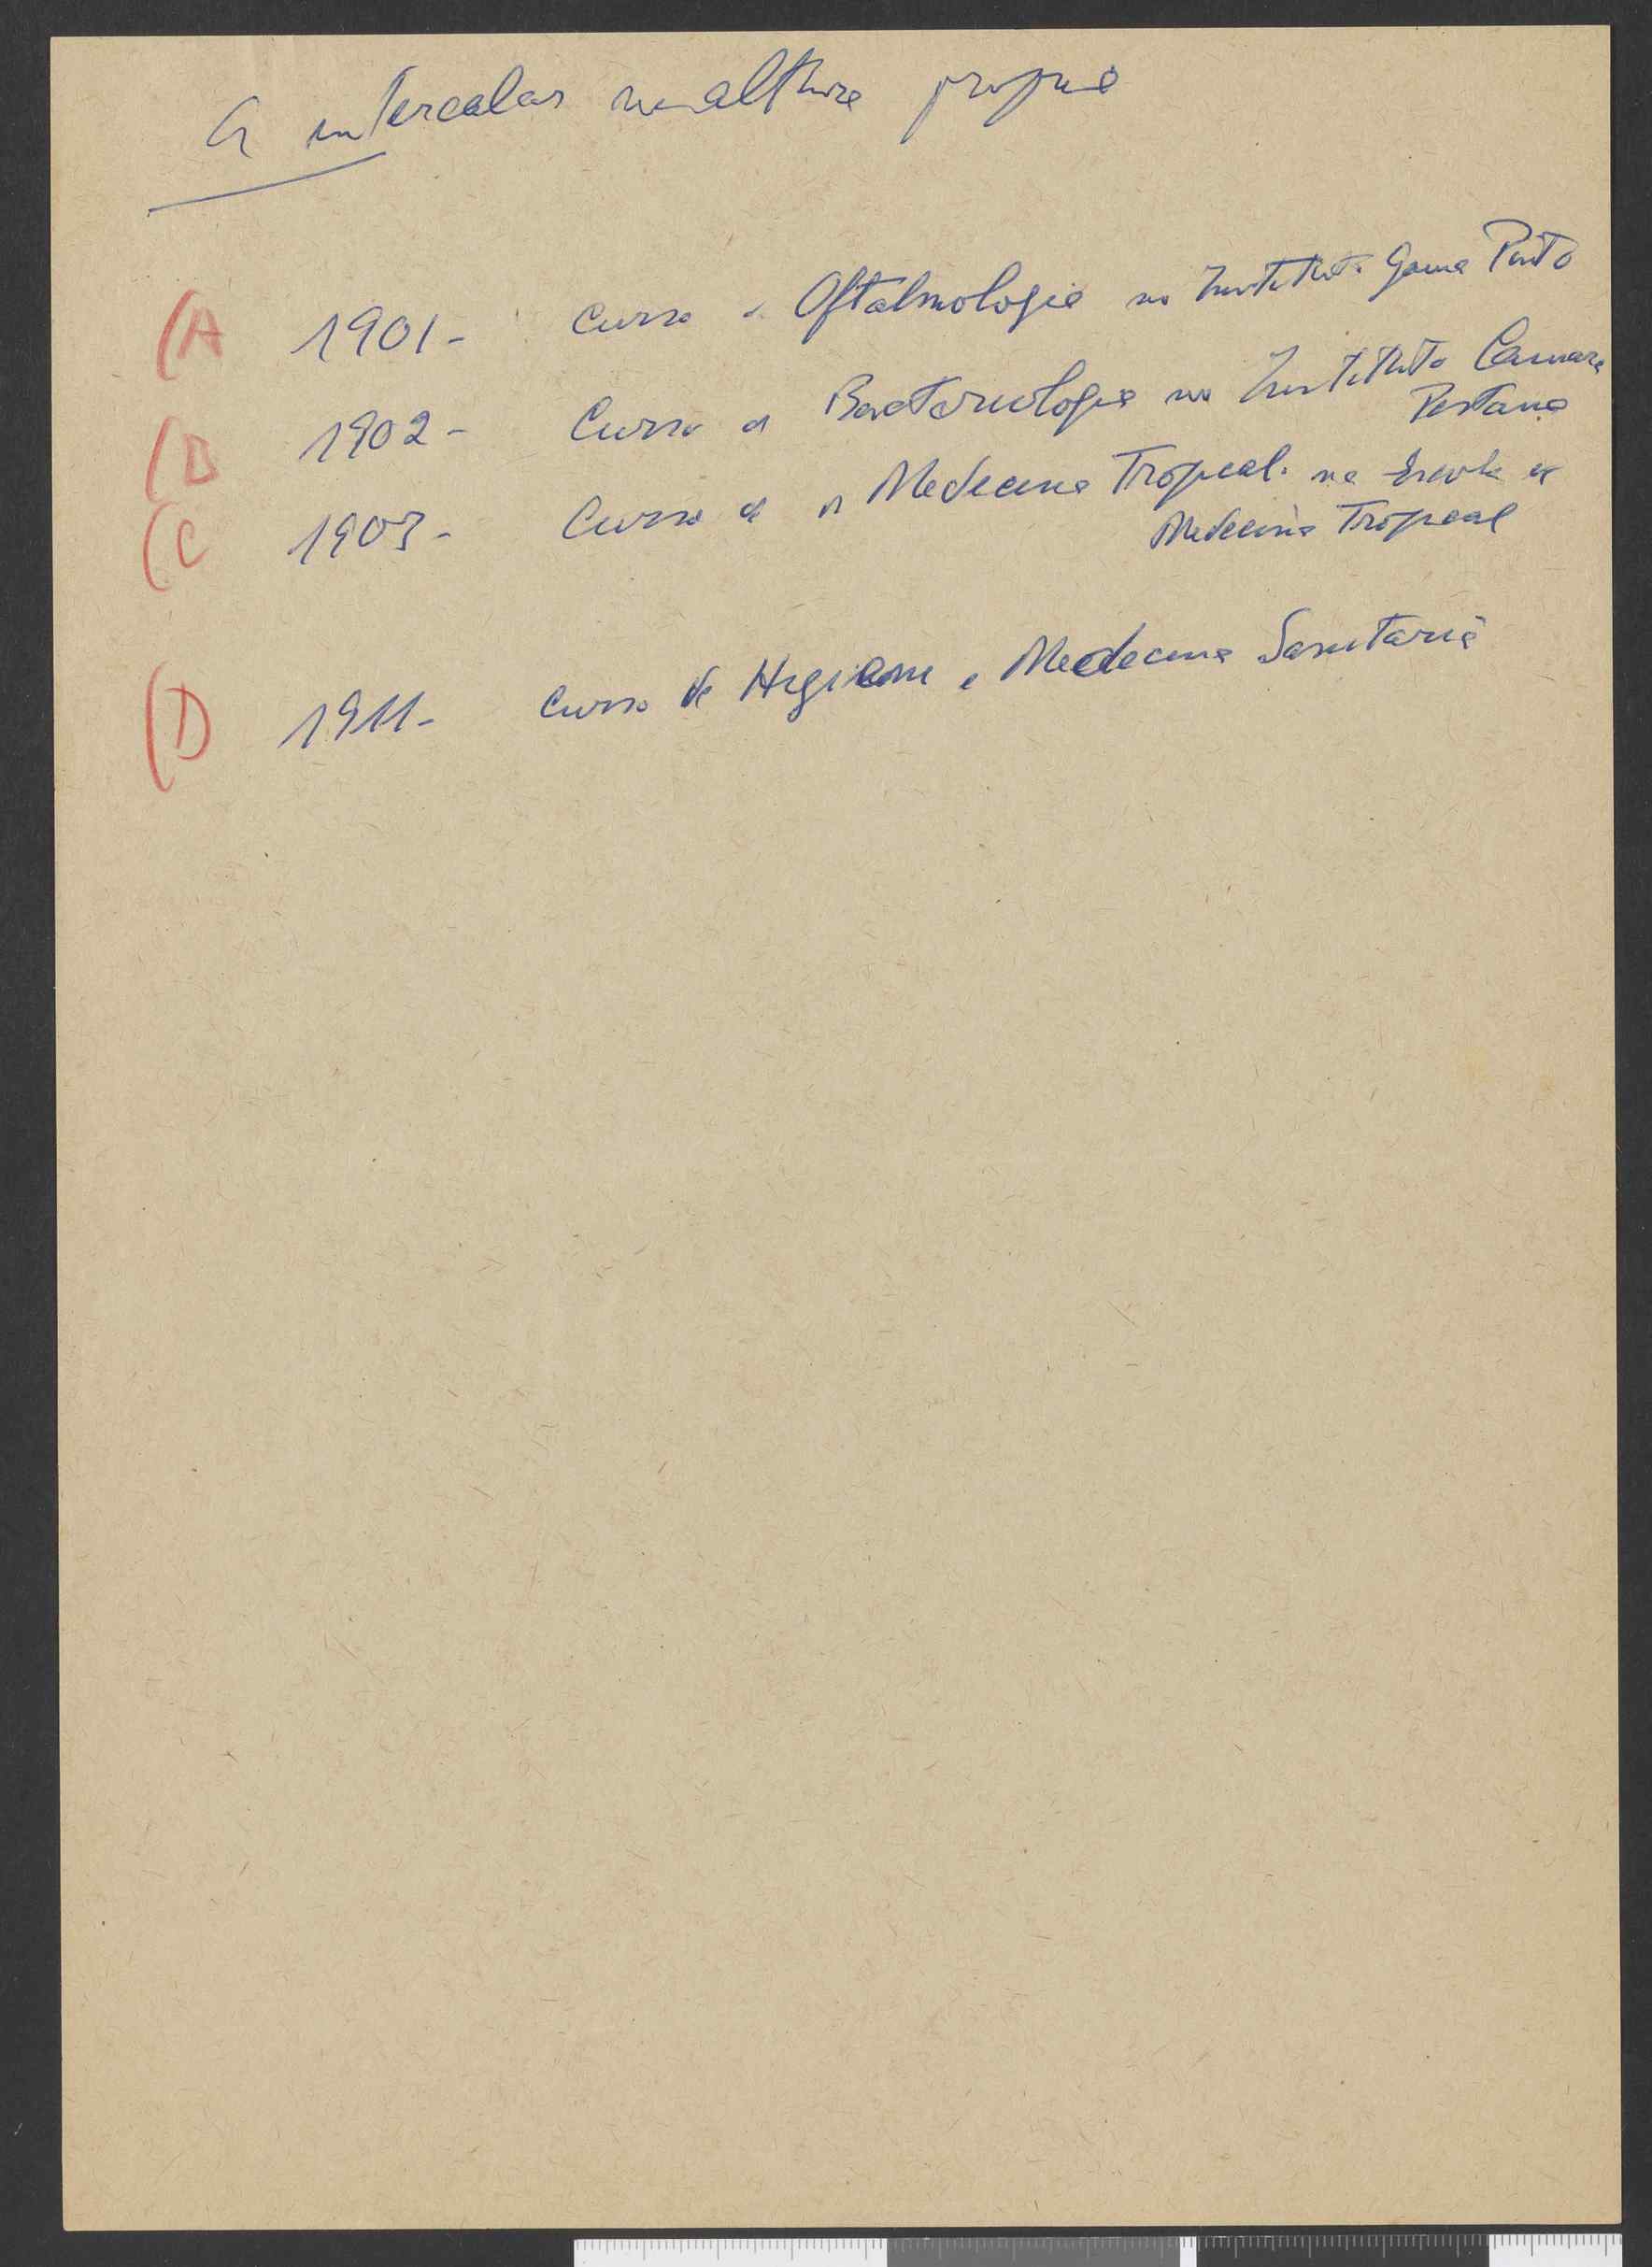 A intercalar na altura propria
(A 1901 - Curso de Oftalmologia no Instituto Gama Pinto
(B 1902 - Curso de Bacteriologia no Instituto Camara
Pestana
(C 1903 - Curso de Medecina Tropical. na Escola de
Medecina Tropical
(D 1911 - Curso de Higiene e Medecina Sanitaria